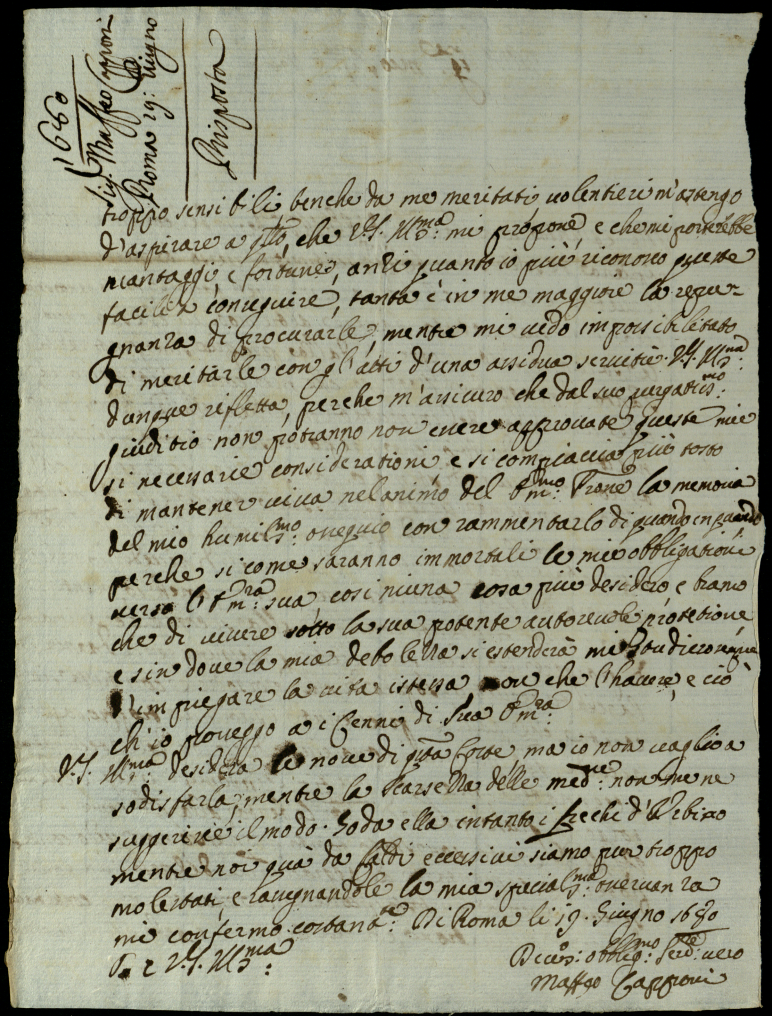 1680
Sig.r Maffeo Capponi
Roma 19: Giugno
Risposta
troppo sensibili benche da me meritati, uolentieri m'astengo
d'aspirare a q.to, che V.S. Ill.ma mi propone, e che mi porterebbe
uantaggi, e fortune, anzi quanto io più riconosco queste
facili à conseguire, tanta è in me maggiore la repu-
gnanza di procurarle, mentre mi uedo impossibilitato
di meritarle con gl'atti d'una assidua seruitù. V.S. Ill.ma
dunque rifletta, perche m'assicuro che dal suo purgatiss.mo
giuditio non potranno non essere approuate queste mie
si necessarie considerationi e si compiaccia più tosto
di mantener uiua nel animo del Em.mo Prone la memoria
del mio humiliss.mo ossequio con rammentarlo di quando in quando
perche si come saranno immortali le mie obbligationi
uerso l'Em.za sua, cosi niuna cosa più desidero, e bramo
che di uiuere sotto la sua potente autoreuole protetione
e sin doue la mia debolezza si estenderà mi studierò sempre
d'impiegare la uita istessa non che l'hauere, e ciò
ch'io posseggo a i Cenni di Sua Em.za
V.S. Ill.ma desidera le noue di q.ta Corte, ma io non uaglio a
sodisfarla, mentre la scarsezza delle med.me non me ne
suggerisce il modo. Goda ella intanto i freschi d'Urbino
mentre noi quà da Caldi eccessiui siamo pur troppo
molestati, e rassegnandole la mia special.ma osseruanza
mi confermo costan.te Di Roma li 19. Giugno 1680
D. V.S. Ill.ma
Deuo.s: obblig.mo Ser.re uero
Maffeo Capponi